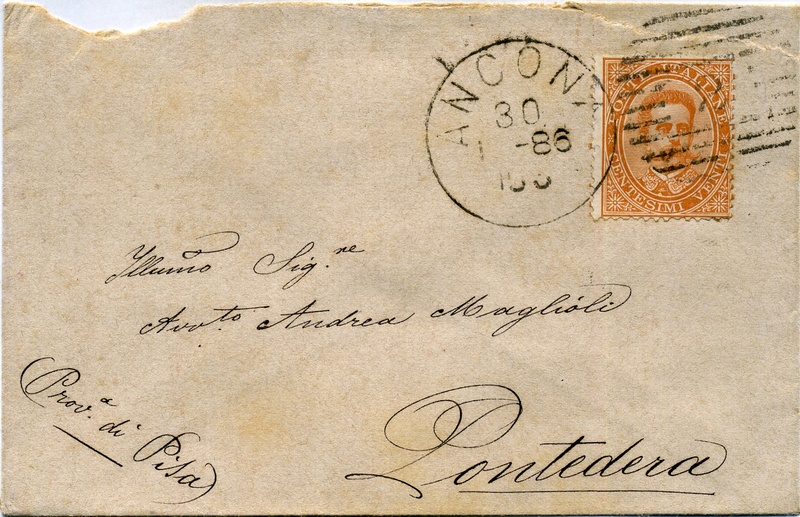 ANCONA
30
1 -86
POSTE ITALIANE
CENTESIMI VENTI
Illumo Sig.re
Avvto. Andrea Maglioli
(Prov.a di Pisa)
Pontedera